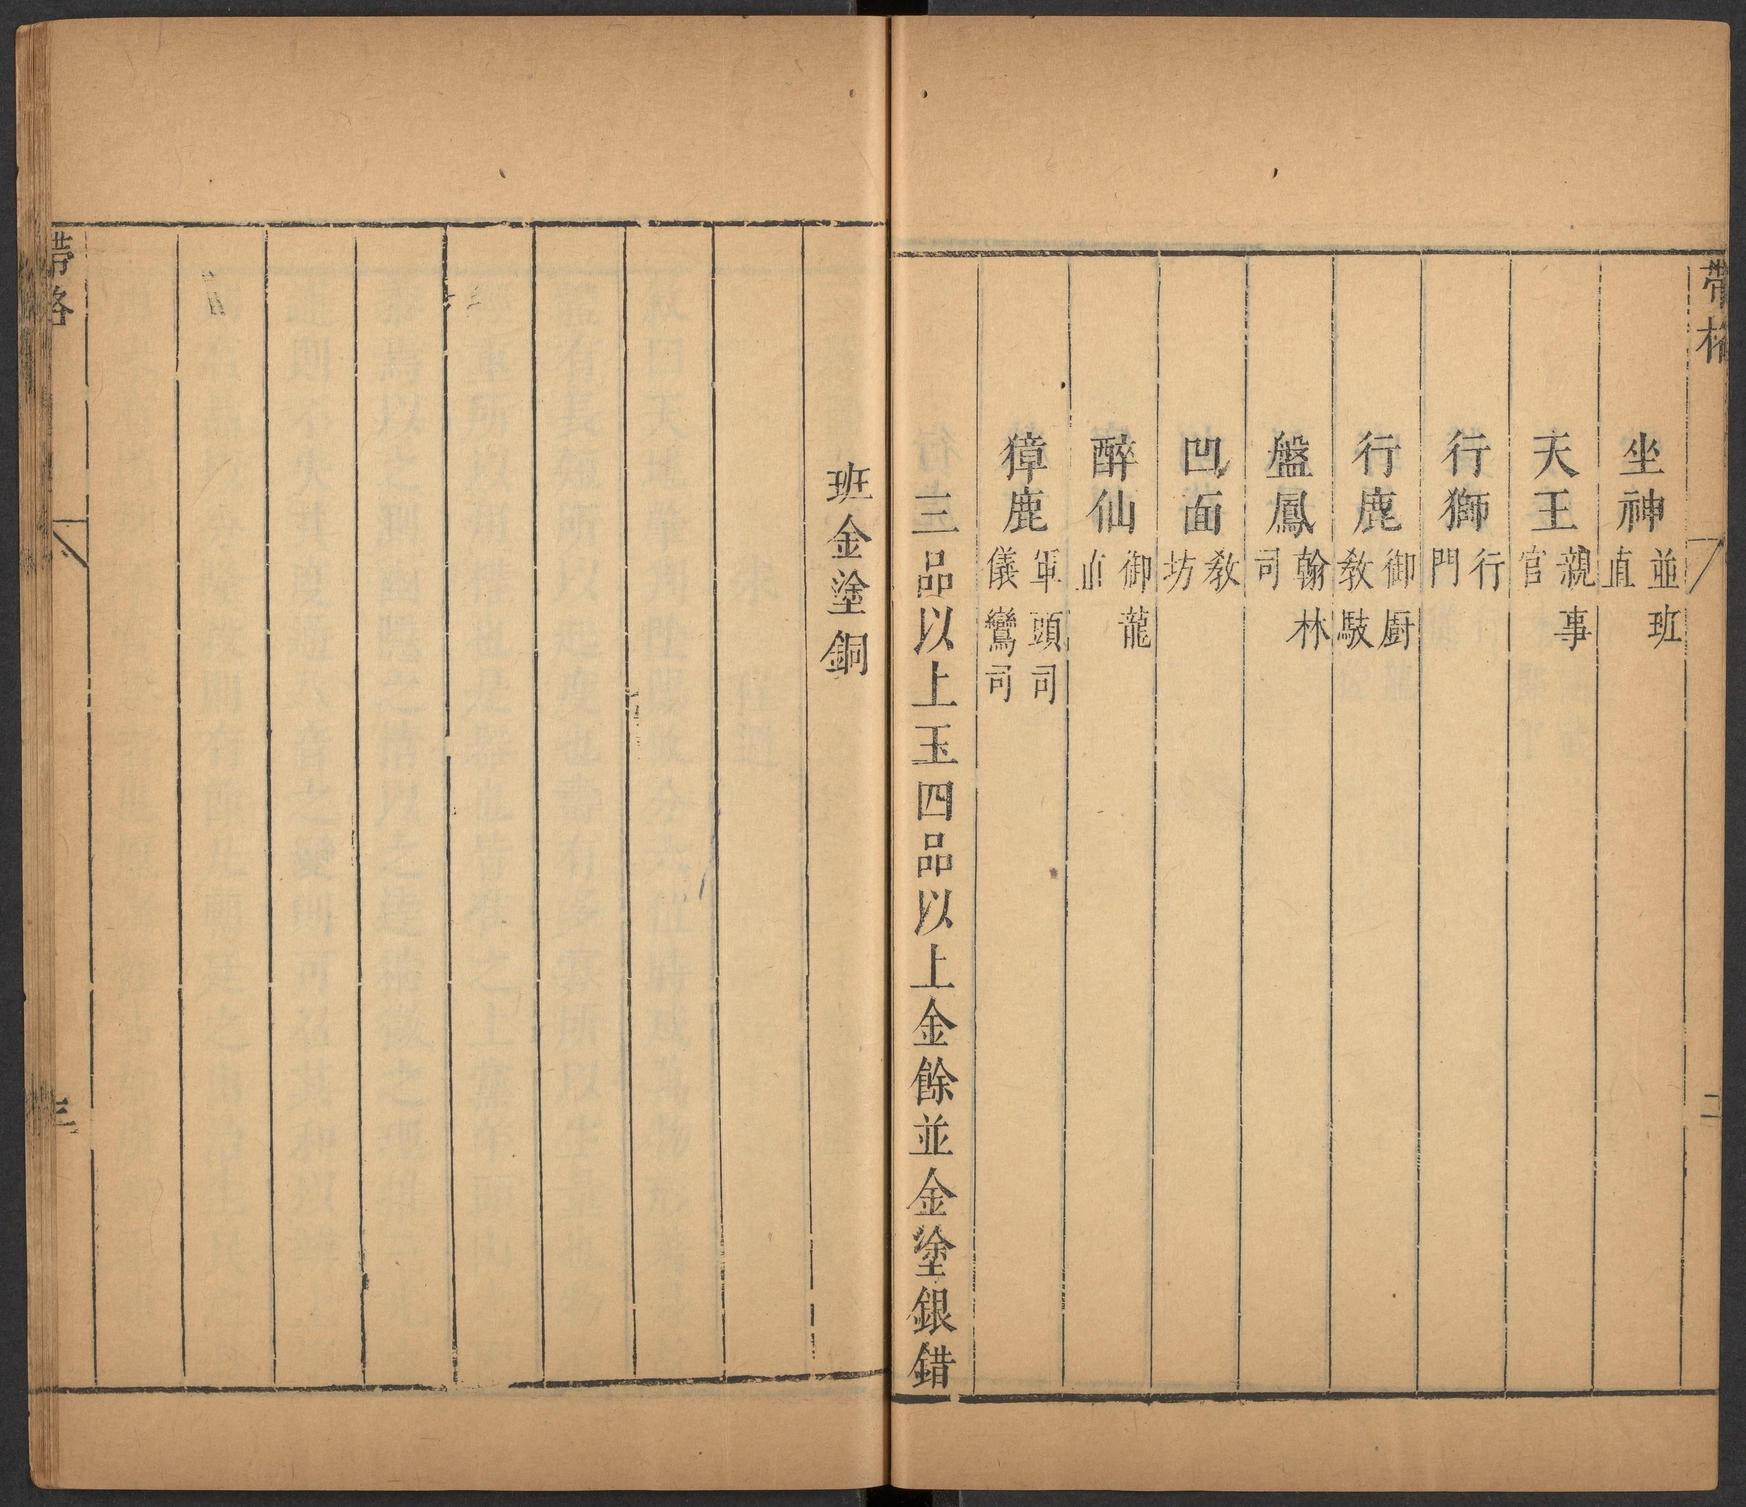 帶格
二
坐神並班直
天王親事官
行獅行門
行鹿御厨教駿
盤鳳翰林司
凹面教坊
醉仙御龍直
獐鹿軍頭司儀鸞司
三品以上玉四品以上金餘並金塗銀錯
班金塗銅
帶格
三